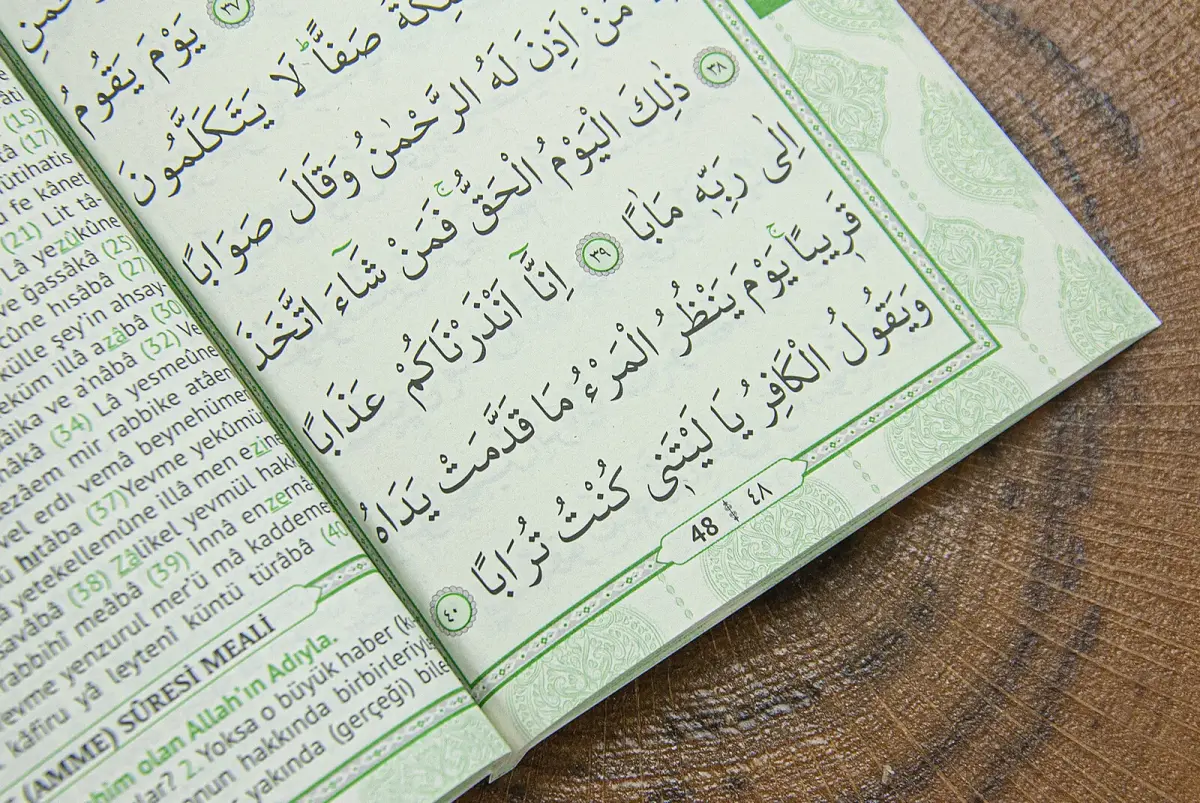 يَوْمَ يَقُومُ ٣٧
صَفًّاۜ لَا يَتَكَلَّمُونَ
مَنْ اَذِنَ لَهُ الرَّحْمٰنُ وَقَالَ صَوَابًا
٣٨ ذٰلِكَ الْيَوْمُ الْحَقُّۚ فَمَنْ شَٓاءَ اتَّخَذَ
اِلٰى رَبِّه۪ مَاٰبًا ٣٩ اِنَّٓا اَنْذَرْنَاكُمْ عَذَابًا
قَر۪يبًاۚ يَوْمَ يَنْظُرُ الْمَرْءُ مَا قَدَّمَتْ يَدَاهُ
وَيَقُولُ الْكَافِرُ يَا لَيْتَن۪ي كُنْتُ تُرَابًا ٤٠
48 ٤٨
(15)
(17)
fe kânet
(21) Lit tâ-
Lâ yezûkûne
ve ğassâkâ (25)
hısâbâ (27)
külle şey'in ahsay-
illâ azâbâ (30)
ve a'nâbâ (32) Ve
(34) Lâ yesmeûne
mir rabbike atâen
vel erdı vemâ beynehümer
hıtâba (37)Yevme yekûmür
yetekellemûne illâ men ezine
savâbâ (38) Zâlikel yevmül hakk
rabbihî meâbâ (39) İnnâ enzernâ
yevme yenzurul mer'ü mâ kaddemet
kâfiru yâ leytenî küntü türâbâ (40)
(AMME) SÛRESİ MEALİ
olan Allah'ın Adıyla.
2. Yoksa o büyük haber
hakkında birbirleriyle
yakında (gerçeği)